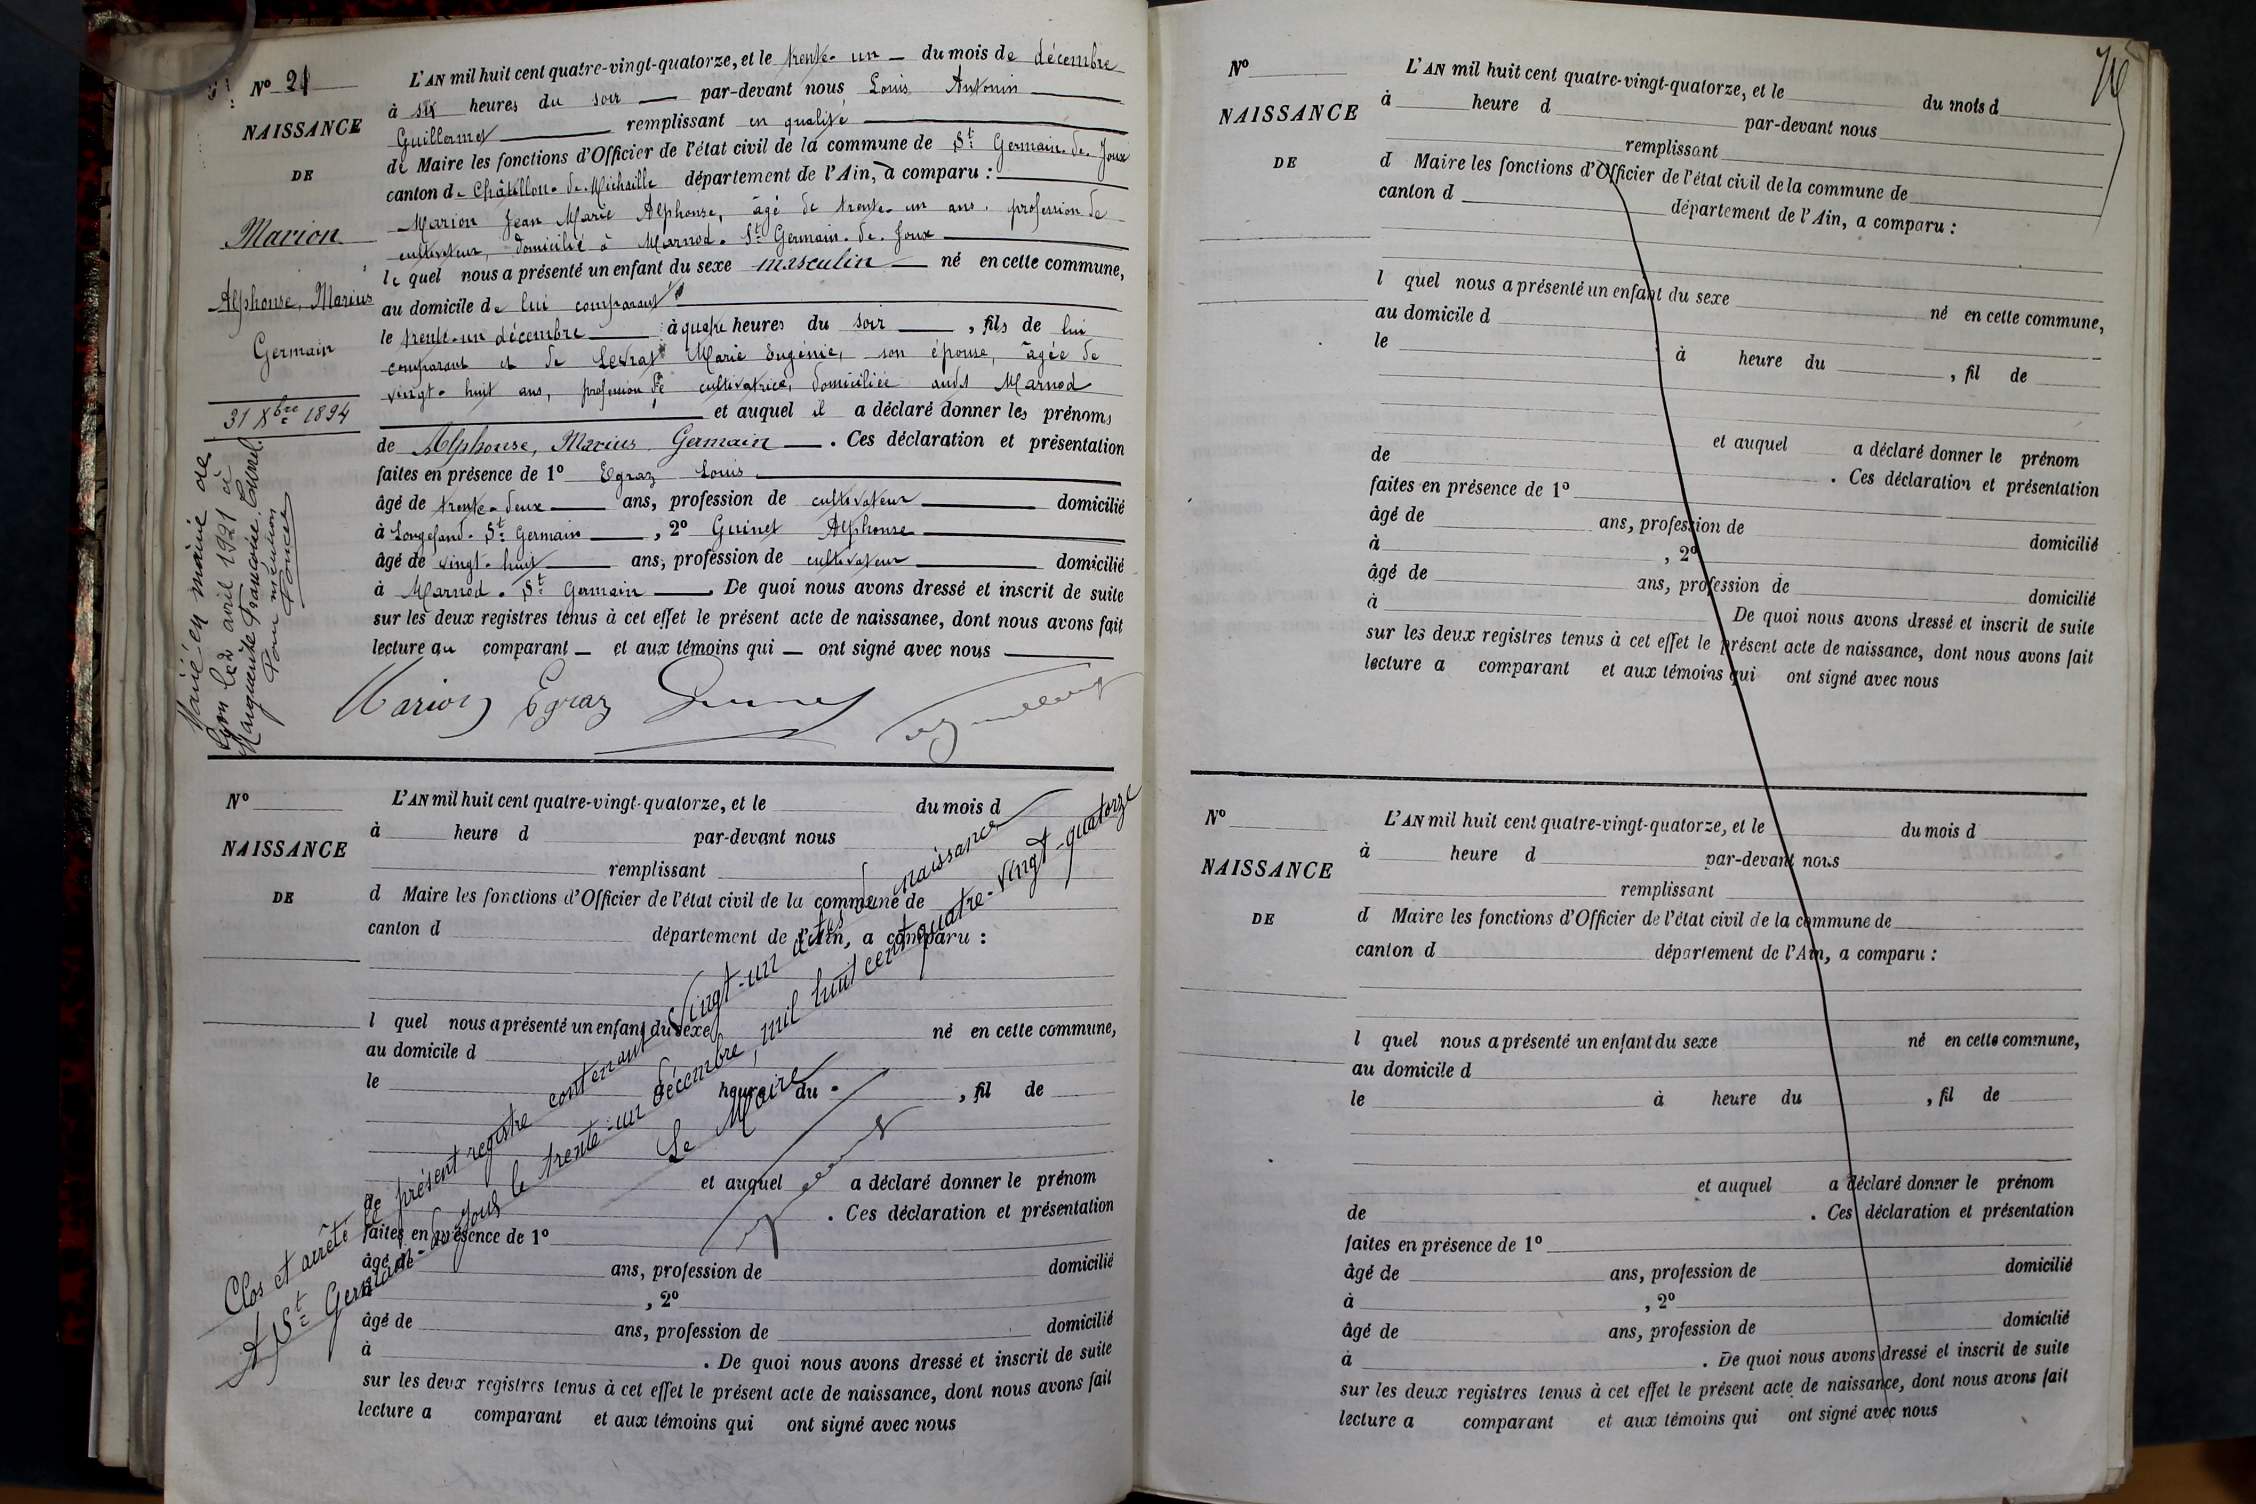 Nº 21
NAISSANCE
DE
Marion
Alphonse, Marius
Germain
31 Xbre 1894
Marié en mairie de
Lyon le 2 avril 1921 à
Marguerite Françoise
Pour mention
L'AN mil huit cent quatre-vingt-quatorze, et le trente-un du mois de décembre
à six heures du soir par-devant nous Louis Antonin
Guillermet remplissant en qualité
de Maire les fonctions d'Officier de l'état civil de la commune de St Germain-de-Joux
canton de Châtillon-de-Michaille département de l'Ain, a comparu :
Marion Jean Marie Alphonse, âgé de trente-un ans, profession de
cultivateur, domicilié à Marnod-St Germain-de-Joux
le quel nous a présenté un enfant du sexe masculin né en cette commune,
au domicile de lui comparant
le trente-un décembre à quatre heures du soir, fils de lui
comparant et de Levrat Marie Eugénie, son épouse, âgée de
vingt-huit ans, profession de cultivatrice, domiciliée audt Marnod
et auquel il a déclaré donner les prénoms
de Alphonse, Marius Germain. Ces déclaration et présentation
faites en présence de 1º Egraz Louis
âgé de trente-deux ans, profession de cultivateur domicilié
à Longefand-St Germain, 2º Guinet Alphonse
âgé de vingt-huit ans, profession de cultivateur domicilié
à Marnod-St Germain. De quoi nous avons dressé et inscrit de suite
sur les deux registres tenus à cet effet le présent acte de naissance, dont nous avons fait
lecture au comparant et aux témoins qui ont signé avec nous
Marion Egraz Guinet
Nº
NAISSANCE
DE
L'AN mil huit cent quatre-vingt-quatorze, et le du mois d
à heure d par-devant nous
remplissant
d Maire les fonctions d'Officier de l'état civil de la commune de
canton d département de l'Ain, a comparu :
l quel nous a présenté un enfant du sexe né en cette commune,
au domicile d
le heure du , fil de
et auquel a déclaré donner le prénom
de . Ces déclaration et présentation
faites en présence de 1º
âgé de ans, profession de domicilié
à , 2º
âgé de ans, profession de domicilié
à . De quoi nous avons dressé et inscrit de suite
sur les deux registres tenus à cet effet le présent acte de naissance, dont nous avons fait
lecture a comparant et aux témoins qui ont signé avec nous
Clos et arrêté le présent registre contenant vingt-un actes de naissance
A St Germain-de-Joux le trente-un décembre, mil huit cent quatre-vingt-quatorze
Le Maire
Nº
NAISSANCE
DE
L'AN mil huit cent quatre-vingt-quatorze, et le du mois d
à heure d par-devant nous
remplissant
d Maire les fonctions d'Officier de l'état civil de la commune de
canton d département de l'Ain, a comparu :
l quel nous a présenté un enfant du sexe né en cette commune,
au domicile d
le à heure du , fil de
et auquel a déclaré donner le prénom
de . Ces déclaration et présentation
faites en présence de 1º
âgé de ans, profession de domicilié
à , 2º
âgé de ans, profession de domicilié
à De quoi nous avons dressé et inscrit de suite
sur les deux registres tenus à cet effet le présent acte de naissance, dont nous avons fait
lecture a comparant et aux témoins qui ont signé avec nous
Nº
NAISSANCE
DE
L'AN mil huit cent quatre-vingt-quatorze, et le du mois d
à heure d par-devant nous
remplissant
d Maire les fonctions d'Officier de l'état civil de la commune de
canton d département de l'Ain, a comparu :
l quel nous a présenté un enfant du sexe né en cette commune,
au domicile d
le à heure du , fil de
et auquel a déclaré donner le prénom
de . Ces déclaration et présentation
faites en présence de 1º
âgé de ans, profession de domicilié
à , 2º
âgé de ans, profession de domicilié
à . De quoi nous avons dressé et inscrit de suite
sur les deux registres tenus à cet effet le présent acte de naissance, dont nous avons fait
lecture a comparant et aux témoins qui ont signé avec nous